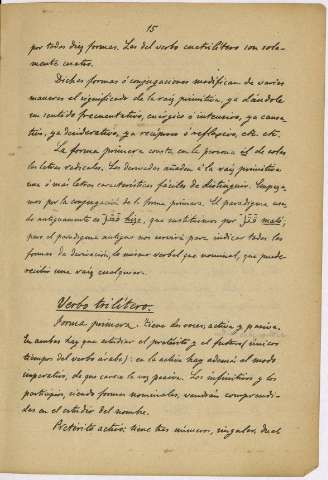 15
por todos diez formas. Las del verbo cuatrilítero son sola-
mente cuatro.
Dichas formas ó conjugaciones modifican de varias
maneras el significado de la raiz primitiva, ya dándole
un sentido frecuentativo, enérgico ó intensivo, ya causa-
tivo, ya desiderativo, ya recíproco ó reflexivo, etc. etc.
La forma primera consta en la persona él de solas
las letras radicales. Las derivadas añaden á la raiz primitiva
una ó más letras características fáciles de distinguir. Empeza-
mos por la conjugación de la forma primera. El paradigma usa-
do antiguamente es فعل hizo, que sustituimos por قتل mató;
pero el paradigma antiguo nos servirá para indicar todas las
formas de derivación, lo mismo verbal que nominal, que puede
recibir una raiz cualquiera.
Verbo trilítero.
Forma primera. Tiene dos voces, activa y pasiva.
En ambas hay que estudiar el pretérito y el futuro (únicos
tiempos del verbo árabe): en la activa hay además el modo
imperativo, de que carece la voz pasiva. Los infinitivos y los
participios, siendo formas nominales, vendrán comprendi-
dos en el estudio del nombre.
Pretérito activo: tiene tres números, singular, dual